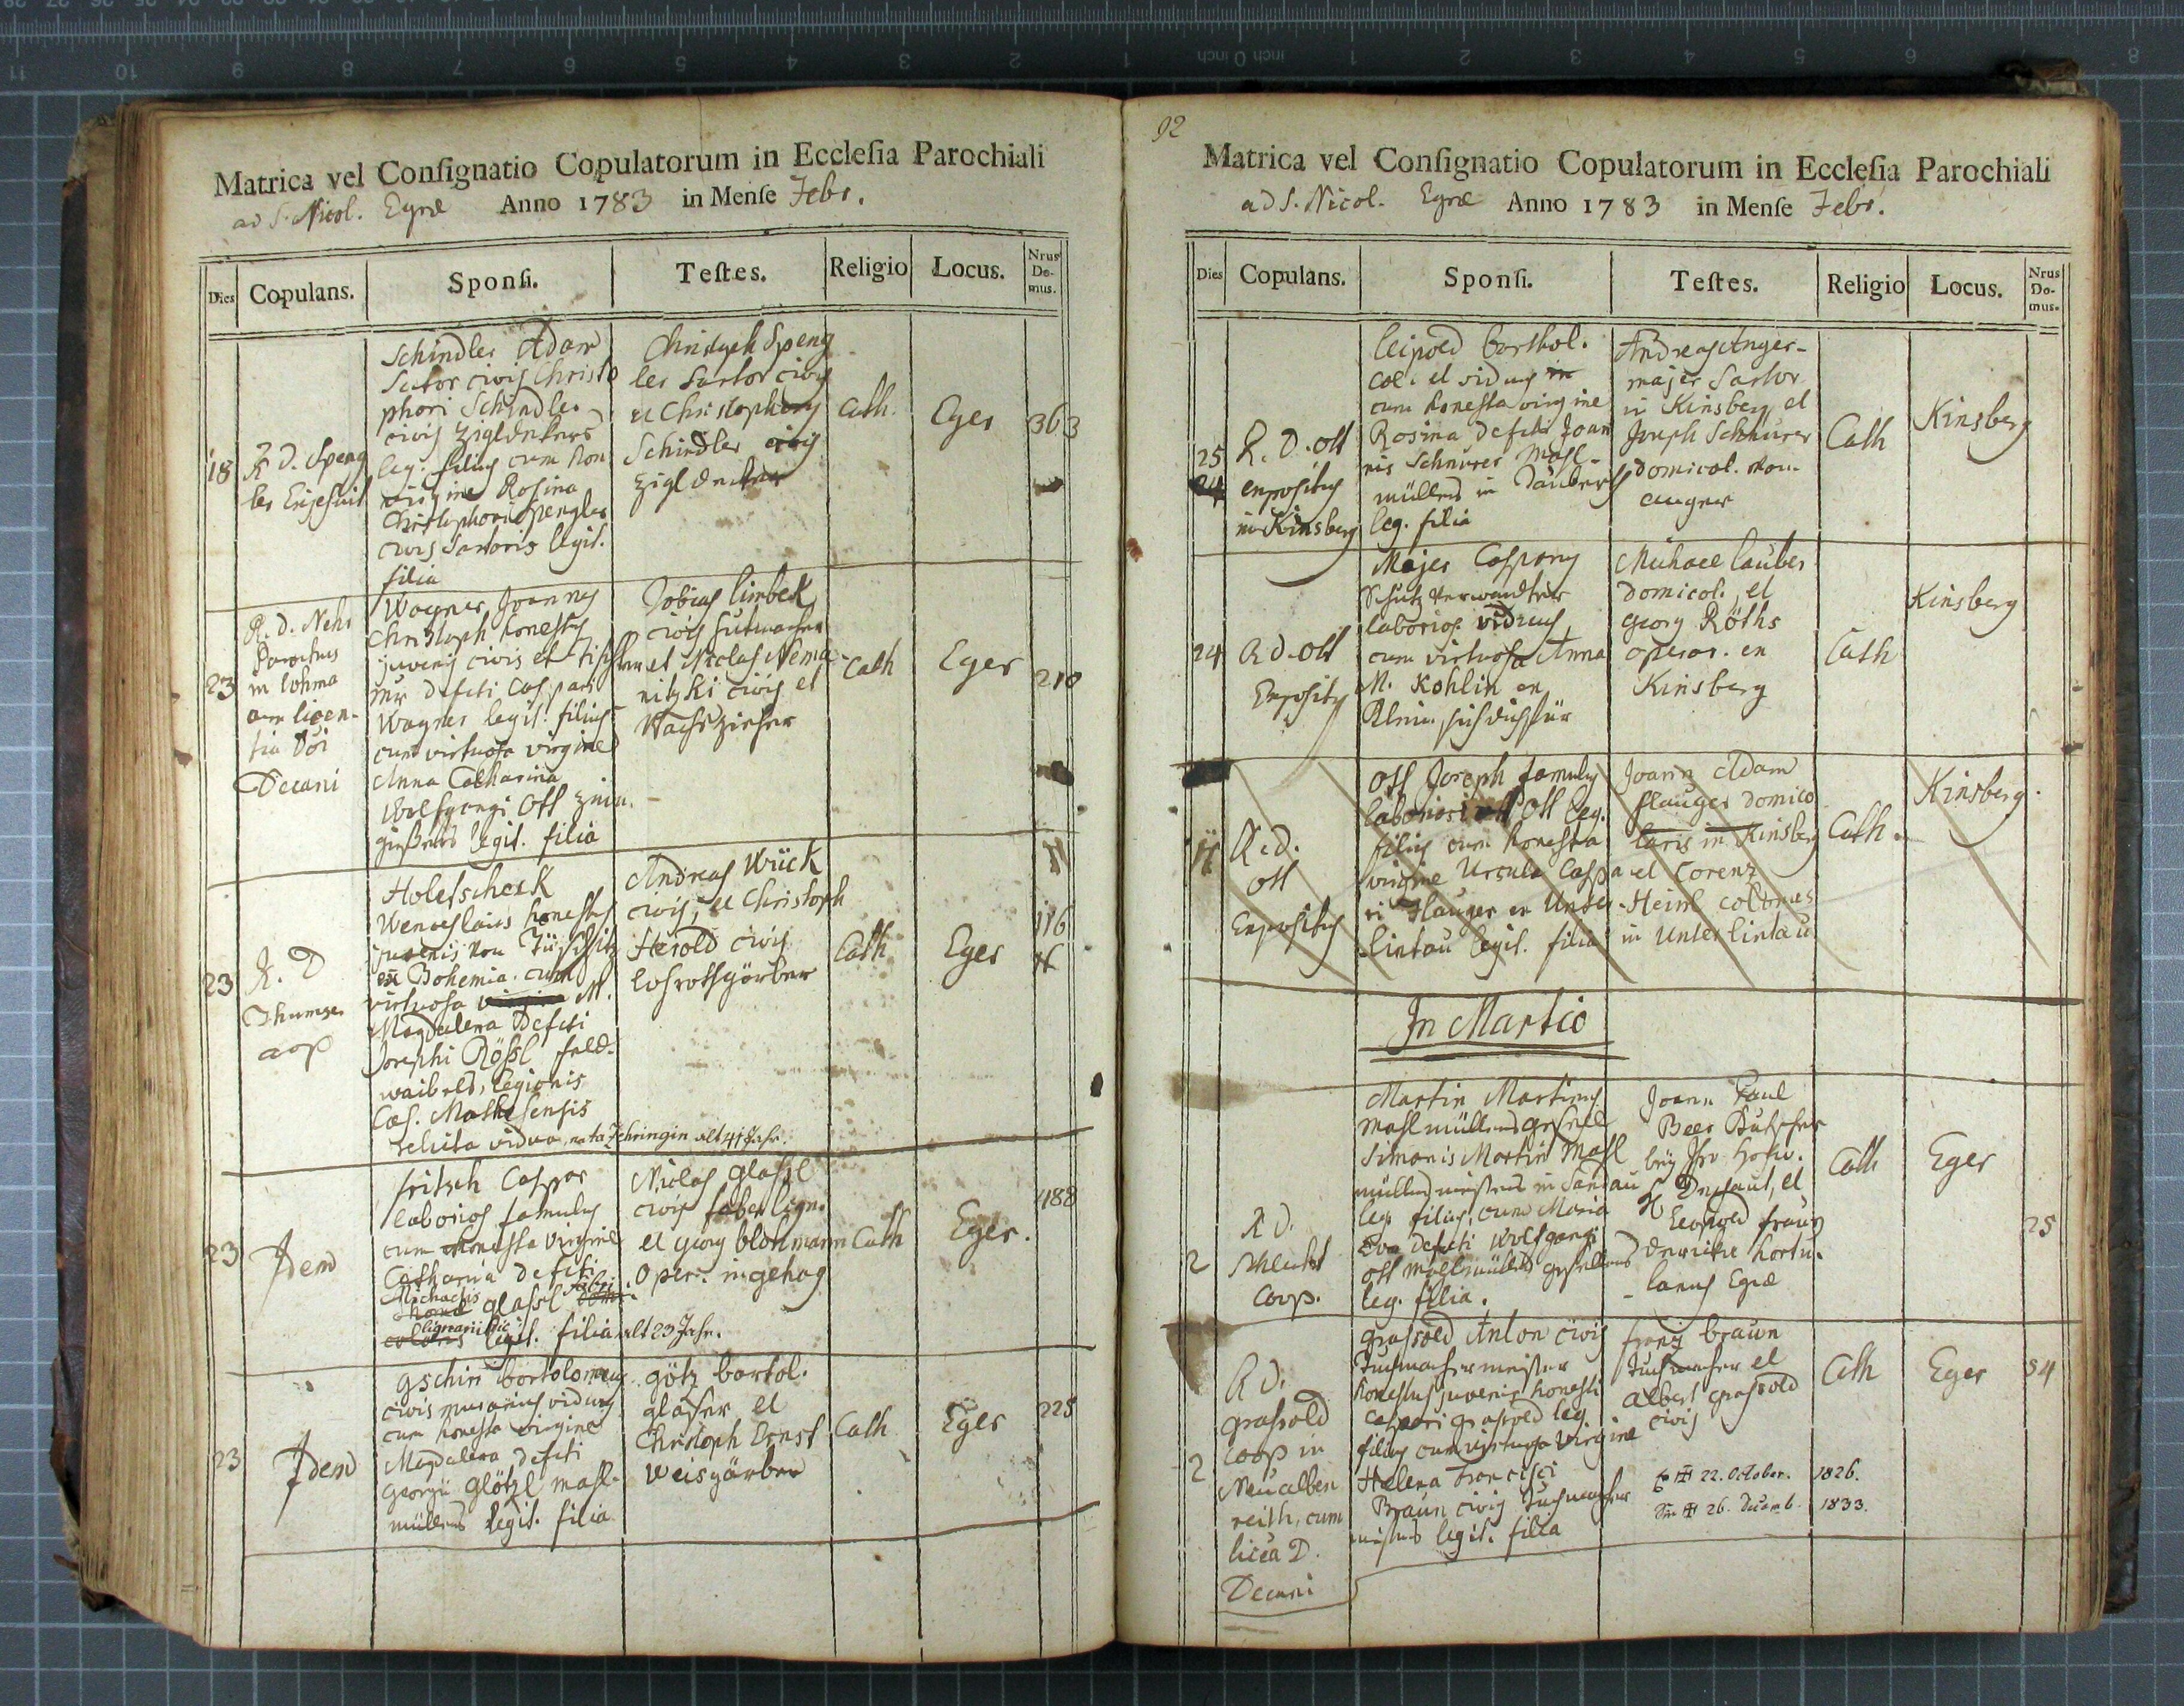 Matrica vel Consignatio Copulatorum in Ecclesia Parochiali
ad S. Nicol. Egræ Anno 1783 in Mense Febr.
Dies Copulans. Sponsi. Testes. Religio Locus. Nrus Do- mus.
18
R. D. Speng
ler Exjesuit
Schindler Adam
Sutor civis Christo
phori Schindler
civis Zigldekers
leg. filius cum hon
virgine Rosina
Christophori Spengler
civis Sartoris legit.
filia
Christoph Speng
ler Sartor civis
et Christophorus
Schindler civis
Zigldeker
Cath.
Eger
363
23
R. D. Nehr
Parochus
in Lohma
cum licen-
tia Dni
Decani
Wagner Joannes
Christoph honestus
juvenis civis et Tischler
defcti Caspari
Wagner legit. filius
cum virtuosa virgine
Anna Catharina
Wolfgangi Ott Zinn
gießers legit. filia
Tobias Limbek
civis Hutmacher
et Niclas Nema
nitzki civis et
Wachszieher
Cath
Eger
210
23
R. D
Thumser
coop
Holetscheck
Wenceslaus honestus
juvenis von
ex Bohemia cum
virtuosa virgine M.
Magdalena Defcti
Josephi Rößl feld-
waibels, legionis
Cæs.
relicta vidua, nata Zehringin alt 41 Jahr.
Andreas Wück
civis, et Christoph
Herold civis
Lohrothgärber
Cath
Eger
116
23
Idem
Fritsch Caspar
laborios famulus
cum honesta virgine
Catharina defcti
Michaelis fabri
glassl
lignarii hic
coloni legit. filia alt 23 Jahr.
Niclas glassl
civis faber lign.
et georg blohmann
Oper. in gehag
Cath
Eger.
488
23
Idem
gschirr bartolomeus
civis murarius viduus
cum honesta virgine
Magdalena defcti
georgii glötzl Mahl-
müllers legit. filia
götz bartol.
glaser et
Christoph Ernst
Weisgärber
Cath
Eger
225
92
Matrica vel Consignatio Copulatorum in Ecclesia Parochiali
ad S. Nicol. Egræ Anno 1783 in Mense Febr.
Dies Copulans. Sponsi. Testes. Religio Locus. Nrus Do- mus.
25
24
R. D. Ott
expositus
in Kinsberg
Leipold Barthol.
col. et viduus in
cum honesta virgine
Rosina defcti Joan
nis Schnurer Mahl-
müllers in
leg. filia
Andreas Anger-
majer Sartor
in Kinsberg et
Joseph Schnurer
domicol.
Cath
Kinsberg
24
R D. Ott
Expositus
Majer Casparus
Schutzverwandter
laborios. viduus
cum virtuosa Anna
M. Kohlin ex
Michael Lauber
domicol., et
georg Röths
operar. ex
Kinsberg
Cath
Kinsberg
R. d.
Ott
Expositus
Ott Joseph famulus
laboriosi Ott leg.
filius cum honesta
virgine Ursula Caspa
ri Flauger ex Unter
lintau legit. filia
Joann Adam
flauger domico
laris in Kinsberg
et Lorenz
Heinl colonus
in Unterlintau
Cath.
Kinsberg.
In Martio
2
R D.
Schlecht
Coop.
Martin Martinus
Mahlmüllersgesell
Simonis Martin Mahl
müllermeisters in Sandau
leg. filius, cum Maria
Eva defcti Wolfgangi
Ott Mahlmüllersgesellens
leg. filia.
Joann Paul
Beer Kutscher
bey
Dessaul, et
Leopold
hortu-
lanus Egræ
Cath
Eger
25
2
R D.
grassold
coop in
Neualben
reith, cum
licia D.
Decani
grassold Anton civis
Tuchmachermeister
honestus juvenis honesti
Caspari grassold leg.
filius cum virtuosa virgine
Helena Francisci
Braun civis Tuchmacher
meisters legit. filia
franz braun
Tuchmacher et
Albert grassold
civis
22. October. 1826.
26. Decemb. 1833.
Cath
Eger
54